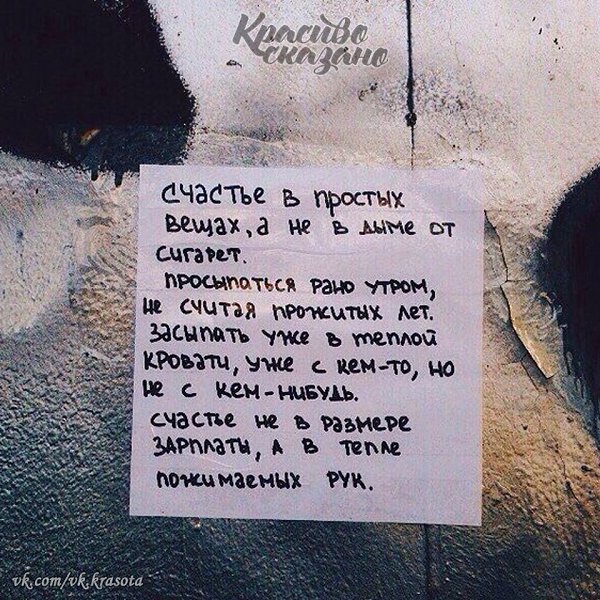 Красиво
сказано
счастье в простых
вещах, а не в дыме от
сигарет.
просыпаться рано утром,
не считая прожитых лет.
засыпать уже в теплой
кровати, уже с кем-то, но
не с кем-нибудь.
счастье не в размере
зарплаты, а в тепле
пожимаемых рук.
vk.com/vk.krasota